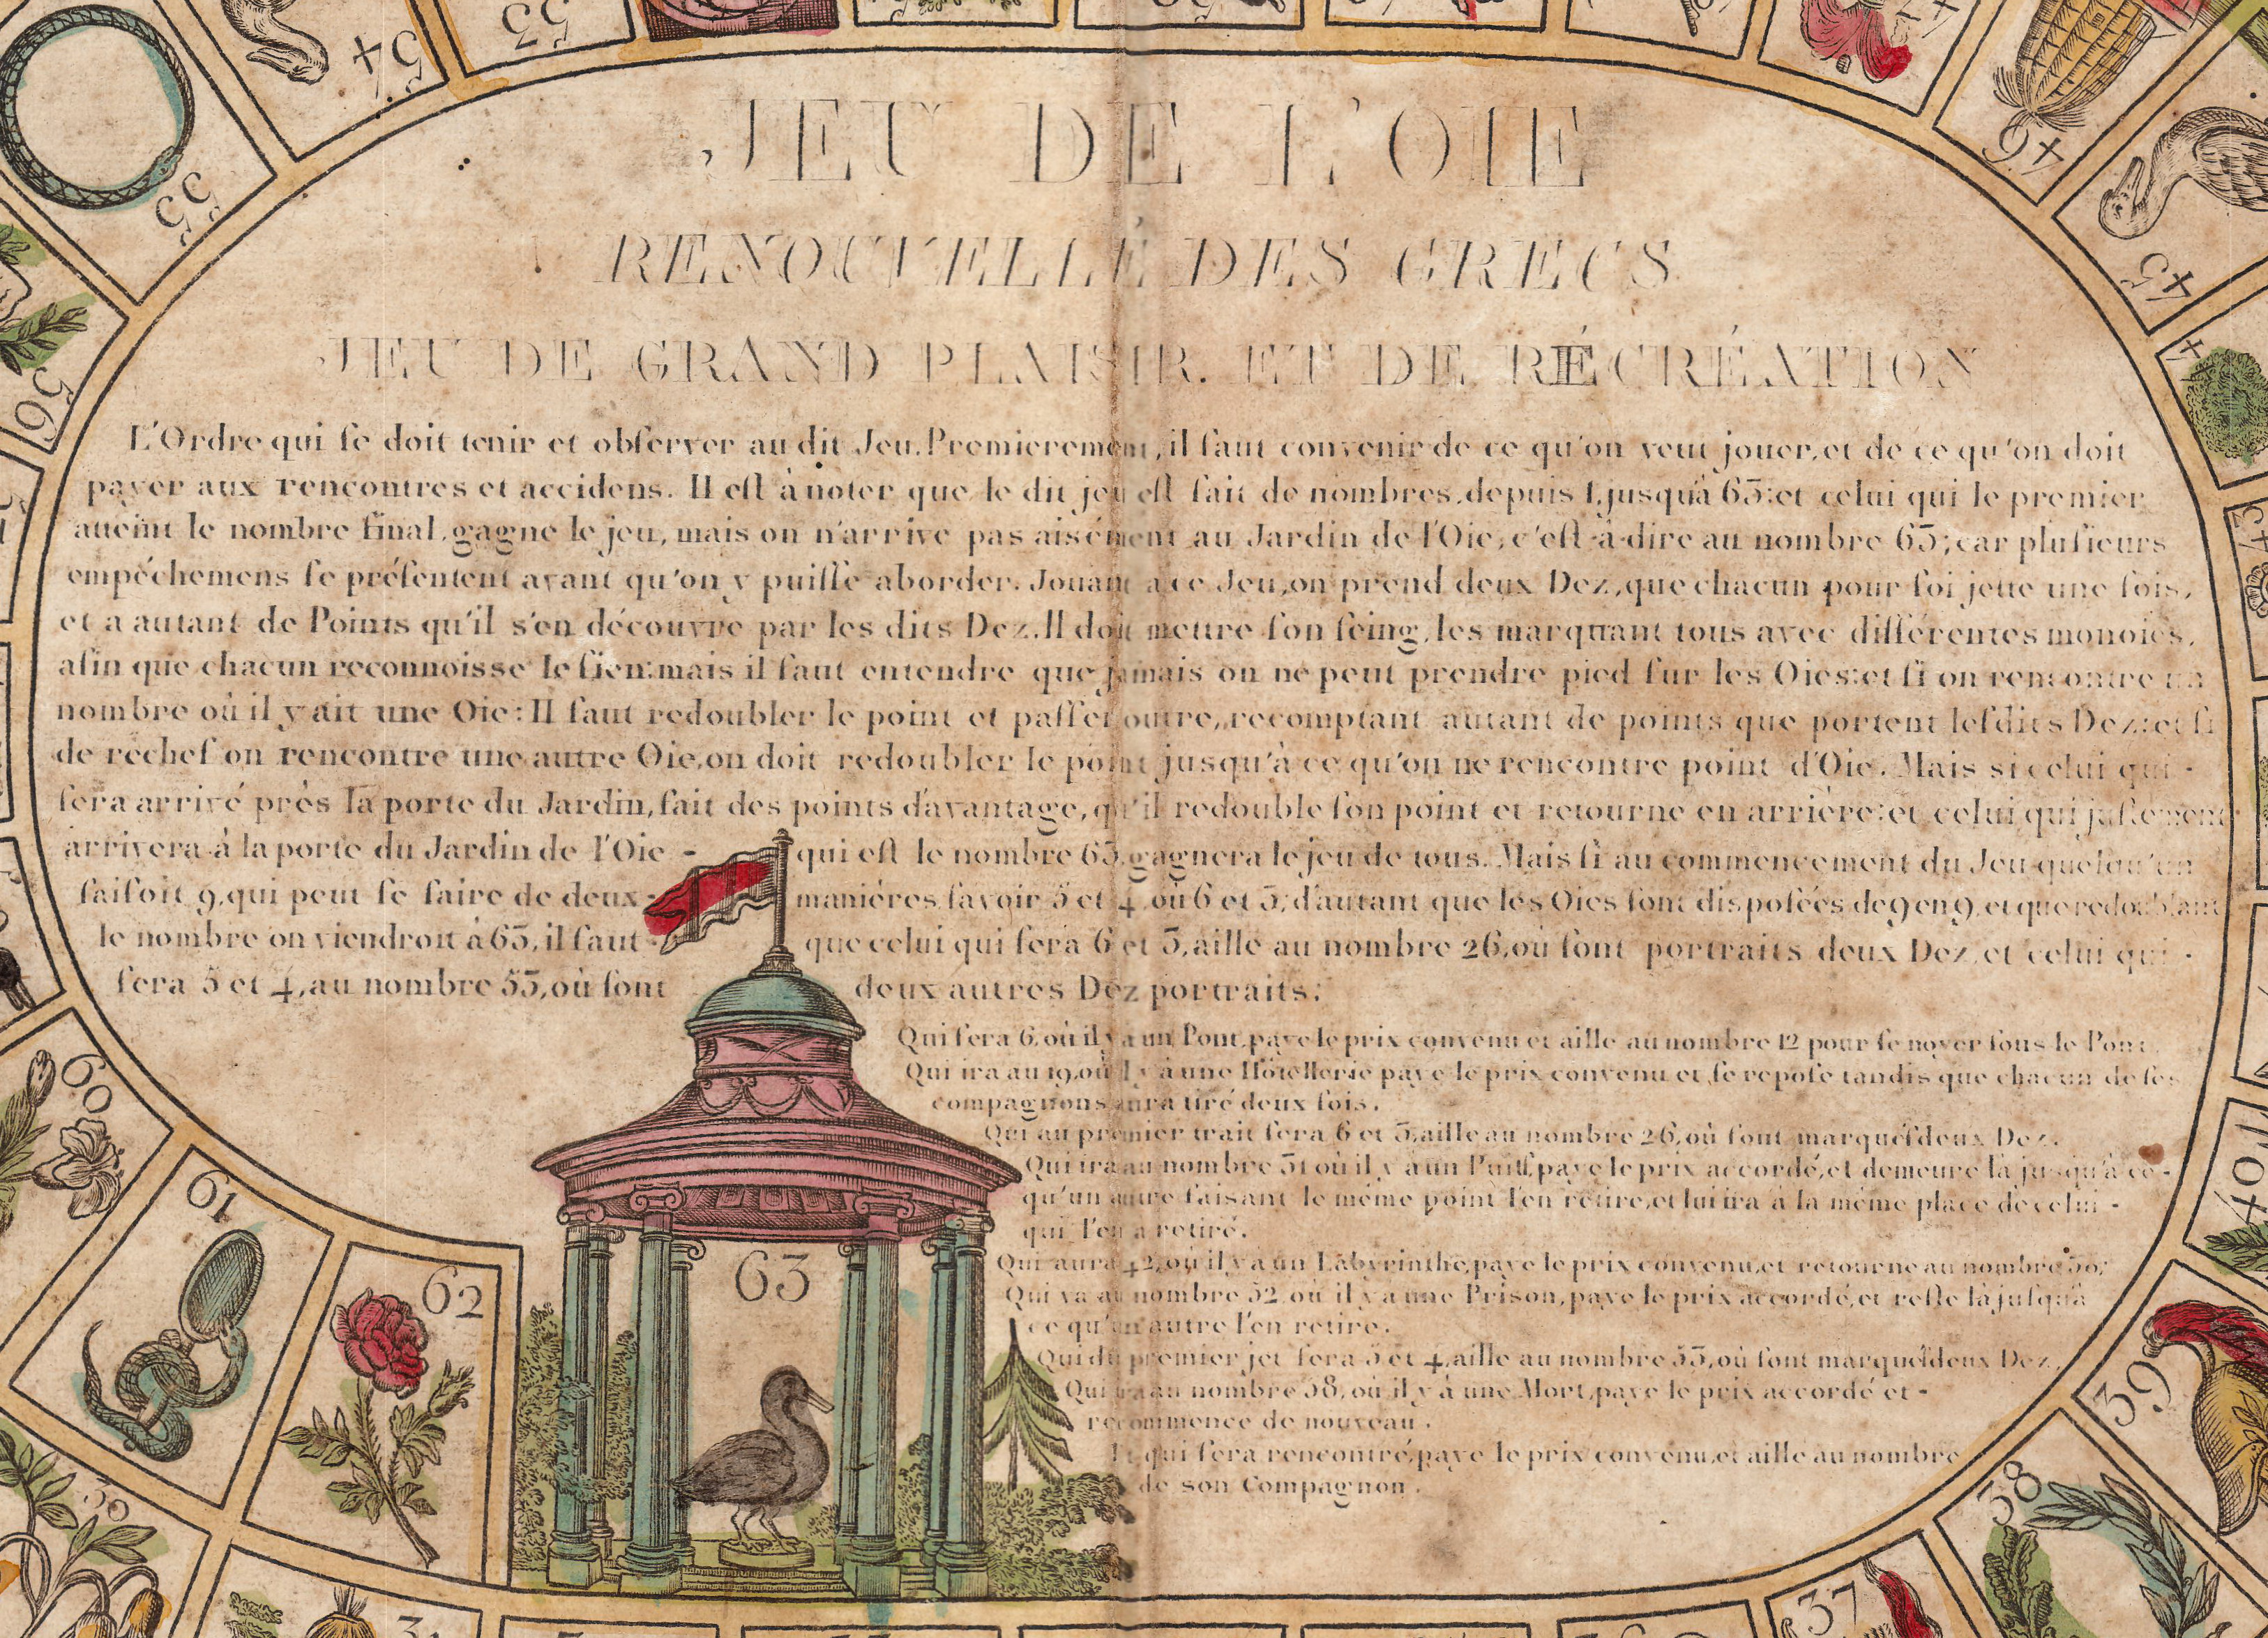 JEU DE L'OIE
RENOUVELLÉ DES GRECS
JEU DE GRAND PLAISIR. ET DE RÉCRÉATION
L'Ordre qui ſe doit tenir et obſerver au dit Jeu. Premierement, il faut convenir de ce qu'on veut jouer, et de ce qu'on doit
payer aux rencontres et accidens. Il eſt à noter que le dit jeu eſt fait de nombres, depuis 1, jusqu'à 63: et celui qui le premier
atteint le nombre final, gagne le jeu, mais on n'arrive pas aisément au Jardin de l'Oie, c'eſt-à-dire au nombre 63; car pluſieurs
empêchemens ſe préſentent avant qu'on y puiſſe aborder. Jouant a ce Jeu, on prend deux Dez, que chacun pour ſoi jette une fois,
et a autant de Points qu'il s'en découvre par les dits Dez. Il doit mettre ſon ſeing, les marquant tous avec différentes monoies,
afin que chacun reconnoisse le ſien: mais il faut entendre que jamais on ne peut prendre pied ſur les Oies: et ſi on rencontre un
nombre où il y ait une Oie: Il faut redoubler le point et paſſer outre, recomptant autant de points que portent leſdits Dez: et ſi
de rechef on rencontre une autre Oie, on doit redoubler le point jusqu'à ce qu'on ne rencontre point d'Oie. Mais si celui qui -
ſera arrivé près la porte du Jardin, fait des points d'avantage, qu'il redouble ſon point et retourne en arrière: et celui qui juſtement
arrivera à la porte du Jardin de l'Oie - qui eſt le nombre 63, gagnera le jeu de tous. Mais ſi au commencement du Jeu quelqu'un
faiſoit 9, qui peut ſe faire de deux - manières, ſavoir 5 et 4, où 6 et 3; d'autant que les Oies ſont dispoſées de 9 en 9, et que redoublant
le nombre on viendroit à 63, il faut - que celui qui ſera 6 et 3, aille au nombre 26, où ſont portraits deux Dez, et celui qui -
ſera 5 et 4, au nombre 53, où ſont deux autres Dez portraits;
Qui ſera 6, où il y a un Pont, paye le prix convenu et aille au nombre 12 pour ſe noyer ſous le Pont.
Qui ira au 19, où il y à une Hôtellerie paye le prix convenu et, ſe repoſe tandis que chacun de ſes
compagnons aura tiré deux fois.
Qui au premier trait ſera 6 et 3, aille au nombre 26, où ſont marqueſdeux Dez.
Qui ira au nombre 31 où il y à un Puitſ, paye le prix accordé, et demeure là jusqu'à ce -
qu'un autre faisant le même point l'en retire, et lui ira à la même place de celui -
qui l'en a retiré.
Qui aura 42, où il y a un Labyrinthe, paye le prix convenu, et retourne au nombre 30;
Qui va au nombre 52, où il y a une Prison, paye le prix accordé, et reſte là juſqu'à
ce qu'un autre l'en retire.
Qui du premier jet ſera 5 et 4, aille au nombre 53, où ſont marqueſdeux Dez,
Qui ira au nombre 58, où il y à une Mort, paye le prix accordé et -
recommence de nouveau.
Et qui ſera rencontré, paye le prix convenu, et aille au nombre
de son Compagnon.
54
53
46
55
45
56
44
43
60
61
40
62
63
39
38
30
37